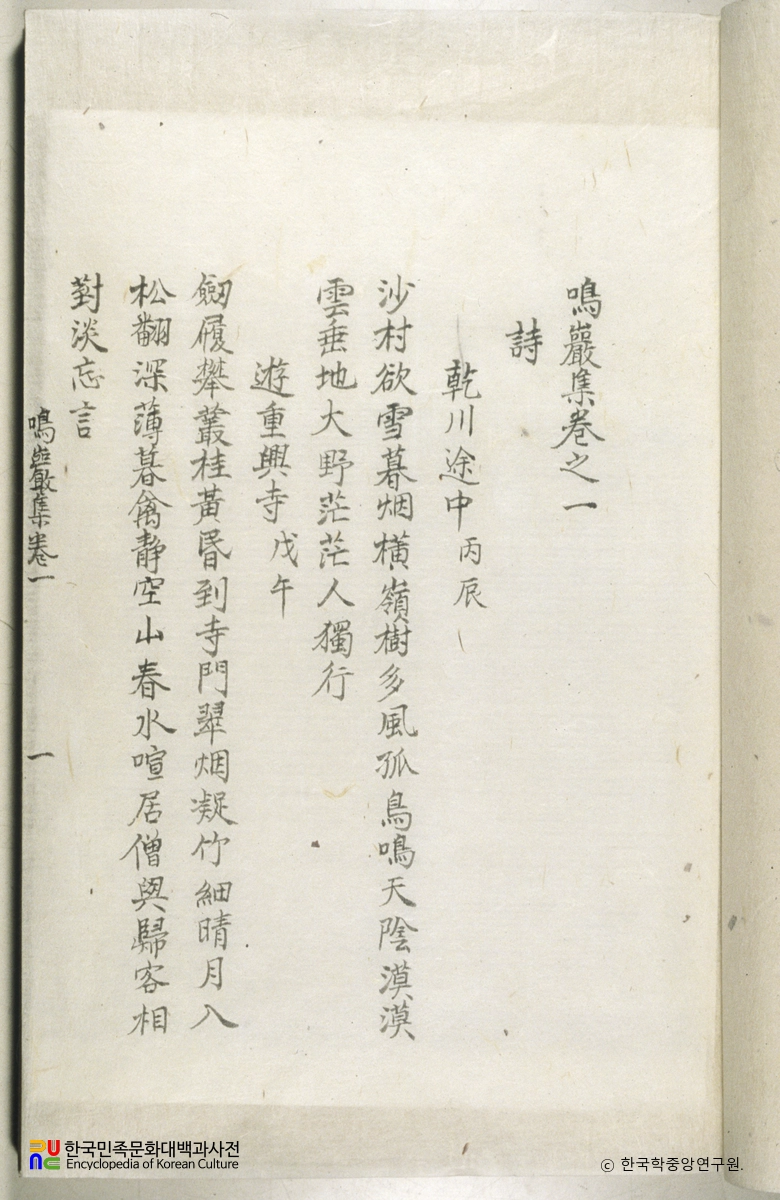 鳴巖集卷之一
詩
乾川途中 丙辰
沙村欲雪暮烟橫嶺樹多風孤鳥鳴天陰漠漠
雲垂地大野茫茫人獨行
遊重興寺 戊午
劒履攀叢桂黃昏到寺門翠烟凝竹細晴月入
松翻深薄暮禽静空山春水喧居僧與歸客相
對淡忘言
鳴巖集卷一
一
한국민족문화대백과사전
Encyclopedia of Korean Culture
ⓒ 한국학중앙연구원.